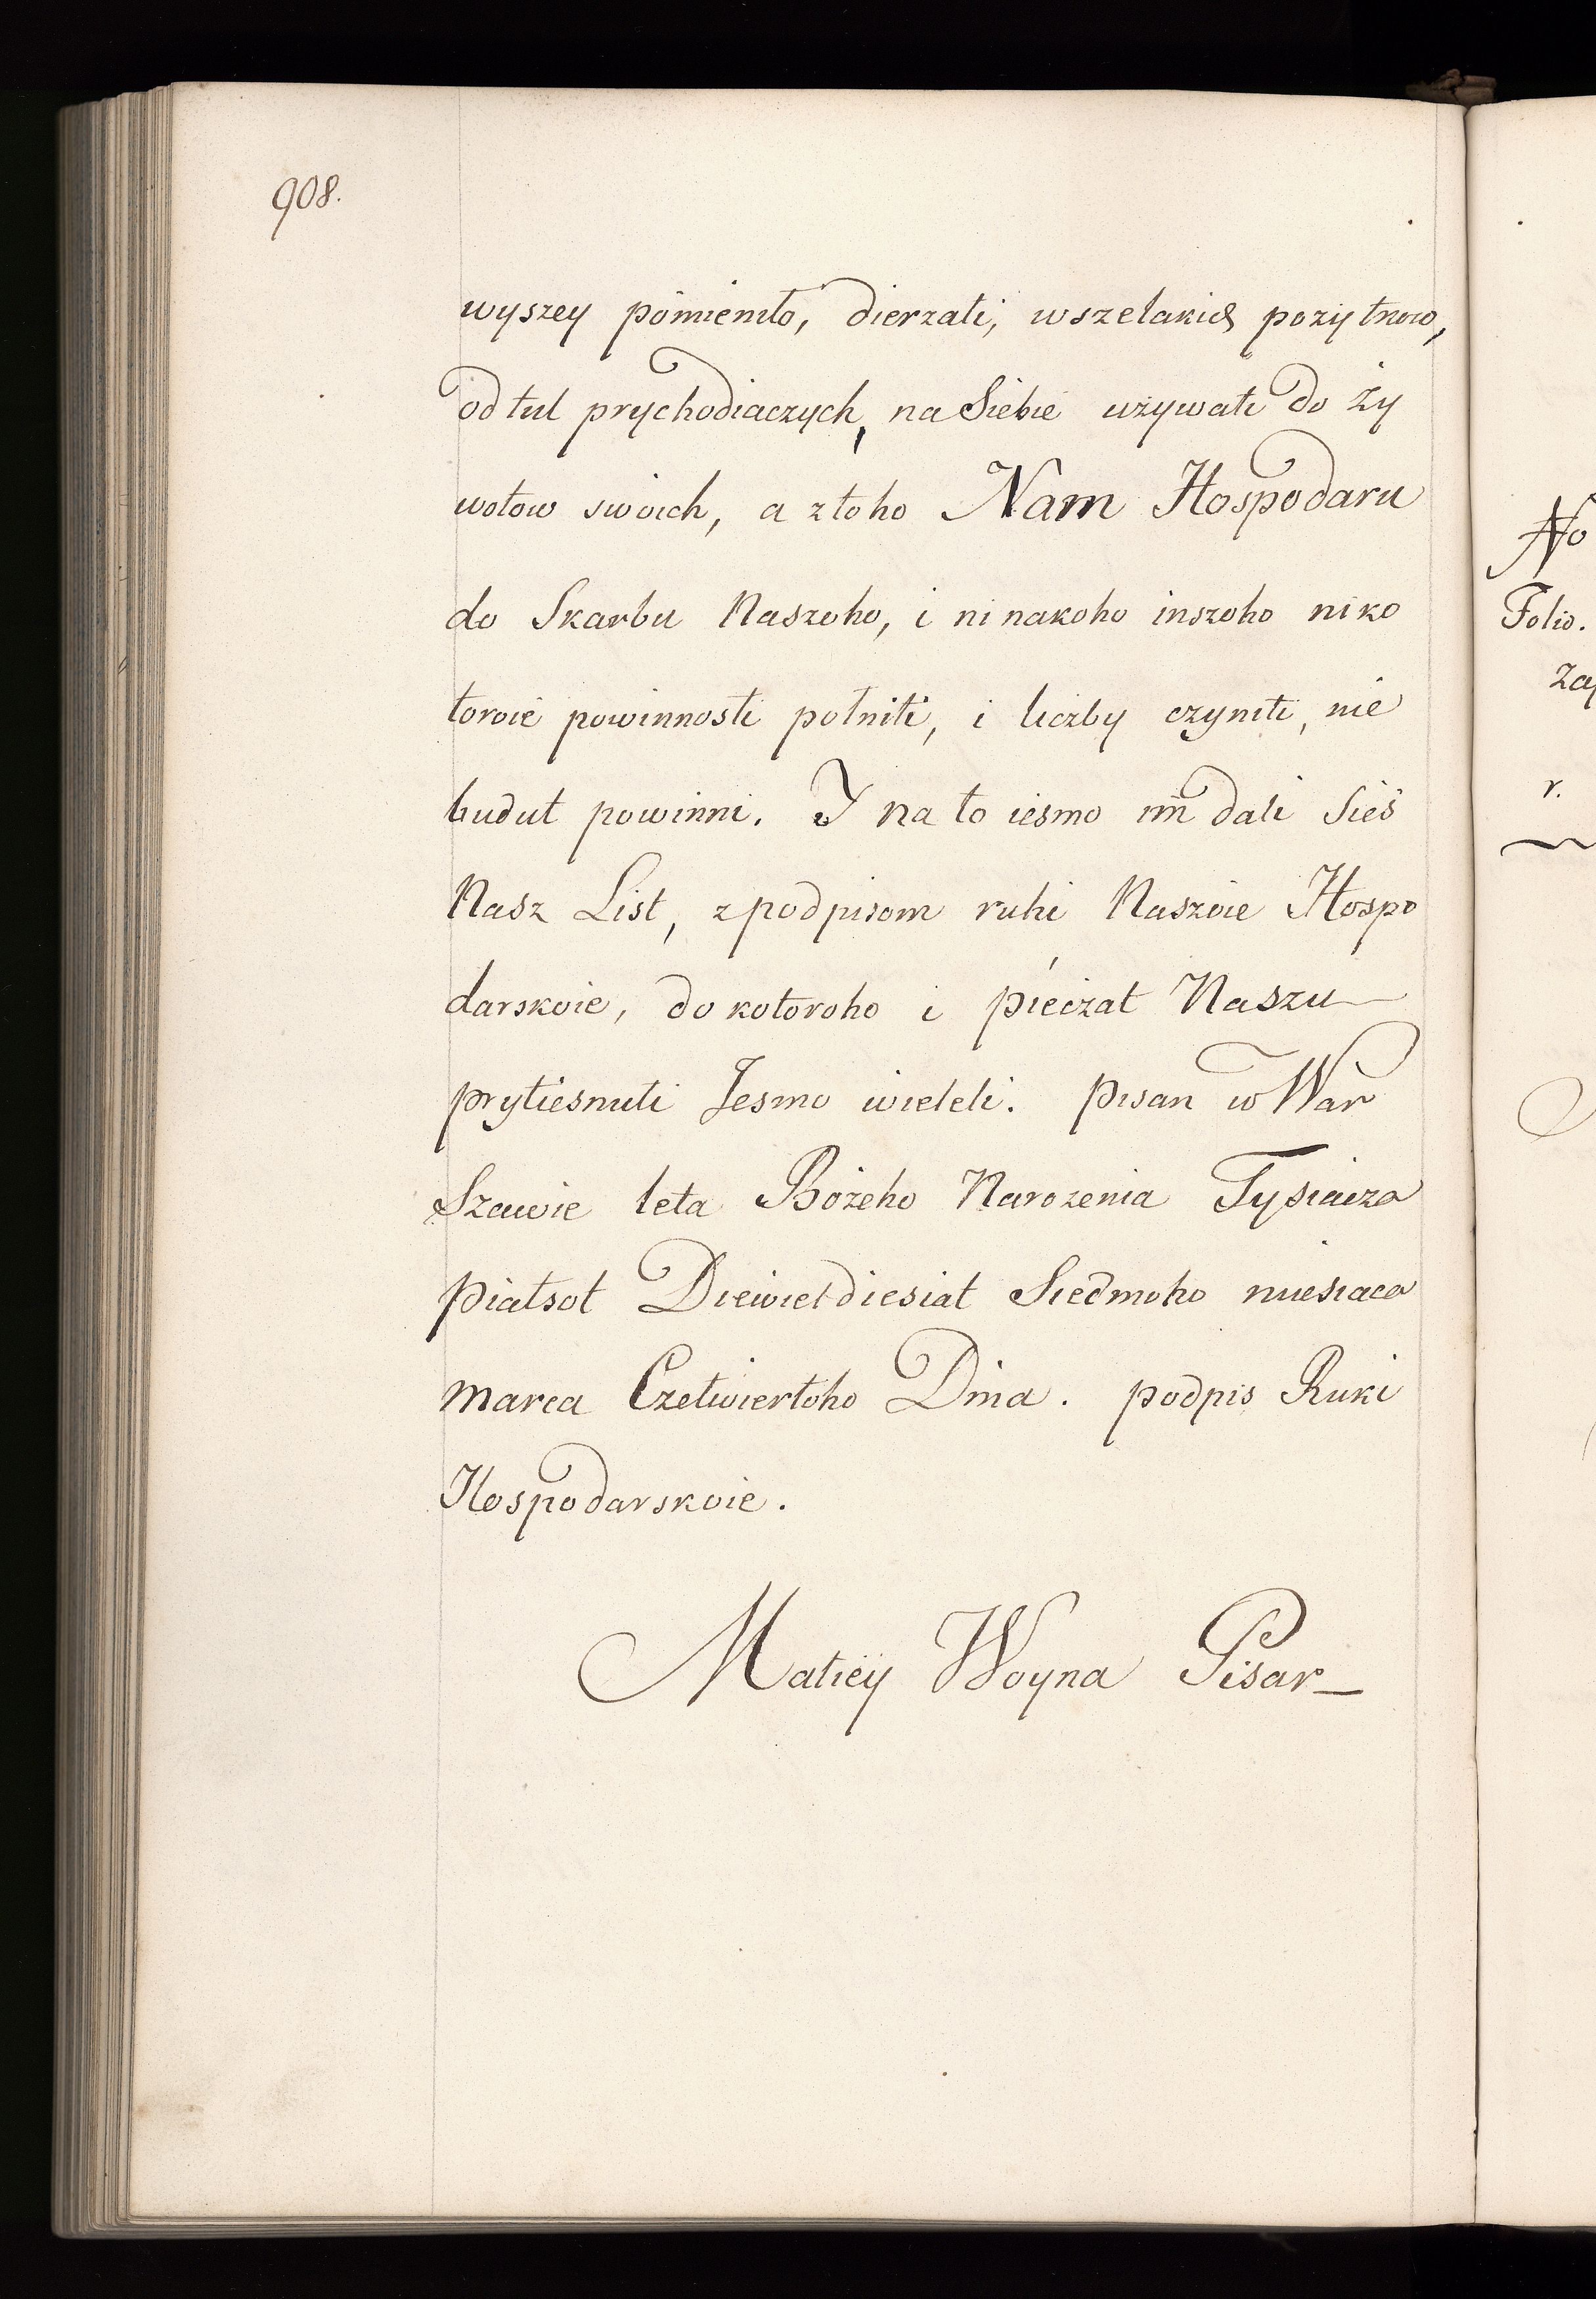 908.
wyszey pomienito, dierzali, wszelakich pozytkow,
odtul prychodiaczych, na Siebie używati do ży
wotow swoich, a ztoho Nam Hospodaru
do Skarbu Naszoho, i ni nakoho inszoho niko
toroie powinnosti połniti, i liczby czyniti, nie
budut powinni. I na to iesmo im dali Sieś
Nasz List, z podpisom ruki Naszoie Hospo
darskoie, do kotoroho i pieczat Naszu
prytisnuti Jesmo wieleli. Pisan w War
Szawie leta Bożeho Narozenia Tysiacza
piatsot Diewietdiesiat Siedmoho miesiaca
marca Czetwiertoho Dnia. podpis Ruki
Hospodarskoie.
Matiey Woyna Pisar
No
Folio.
r.